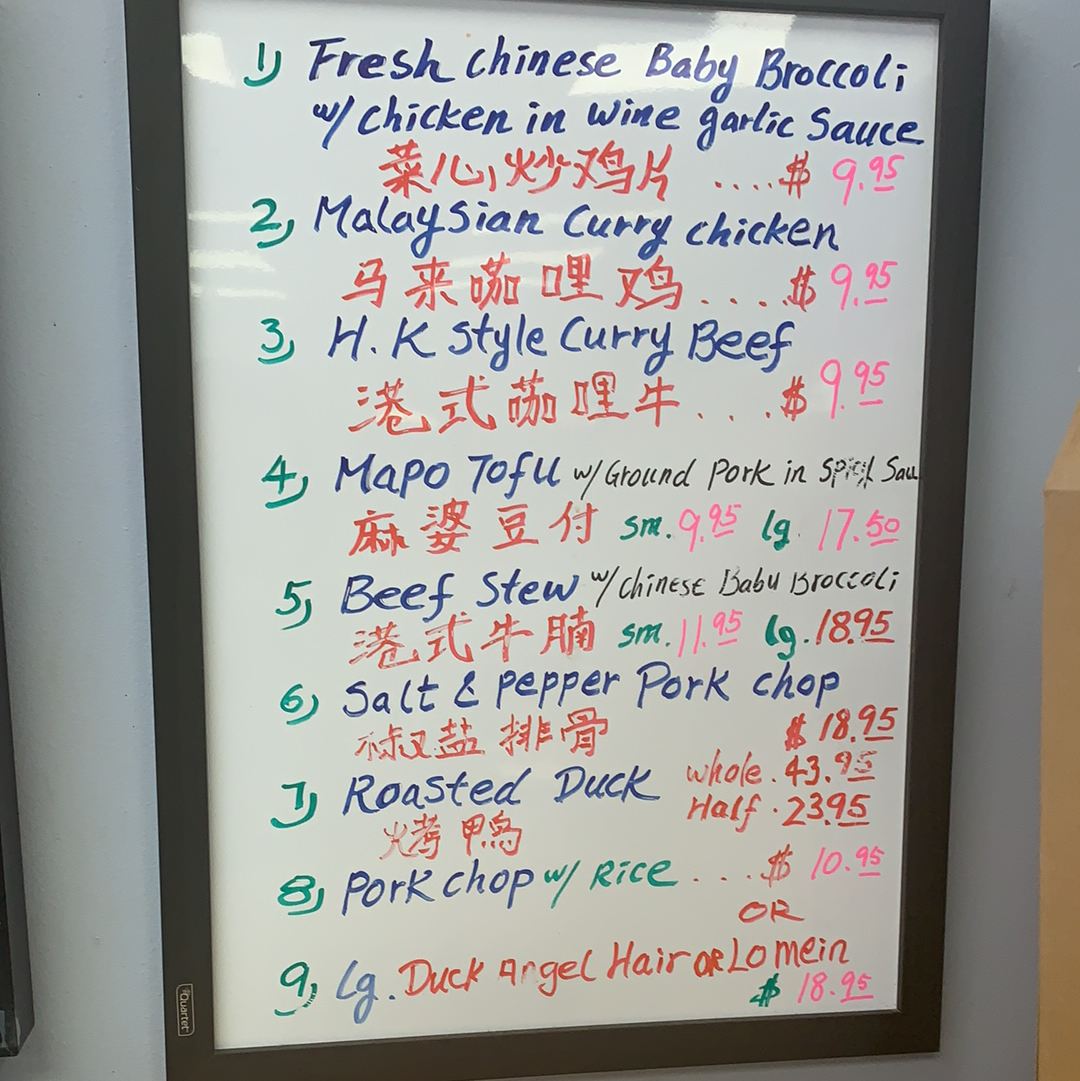 1) Fresh Chinese Baby Broccoli
w/ chicken in wine garlic Sauce
菜心炒鸡片 ....$ 9.95
2) Malaysian Curry chicken
马来咖哩鸡....$ 9.95
3) H.K Style Curry Beef
港式咖哩牛....$ 9.95
4) Mapo Tofu w/ Ground Pork in Spicy
麻婆豆付 sm. 9.95 lg. 17.50
5) Beef Stew w/ Chinese Baby Broccoli
港式牛腩 sm. 11.95 lg. 18.95
6) Salt & pepper Pork chop
椒盐排骨 $ 18.95
7) Roasted Duck whole. 43.95
火考鸭 Half. 23.95
8) Pork chop w/ Rice ....$ 10.95
OR
9) Lg. Duck Angel Hair OR Lo mein
$ 18.95
Quartet